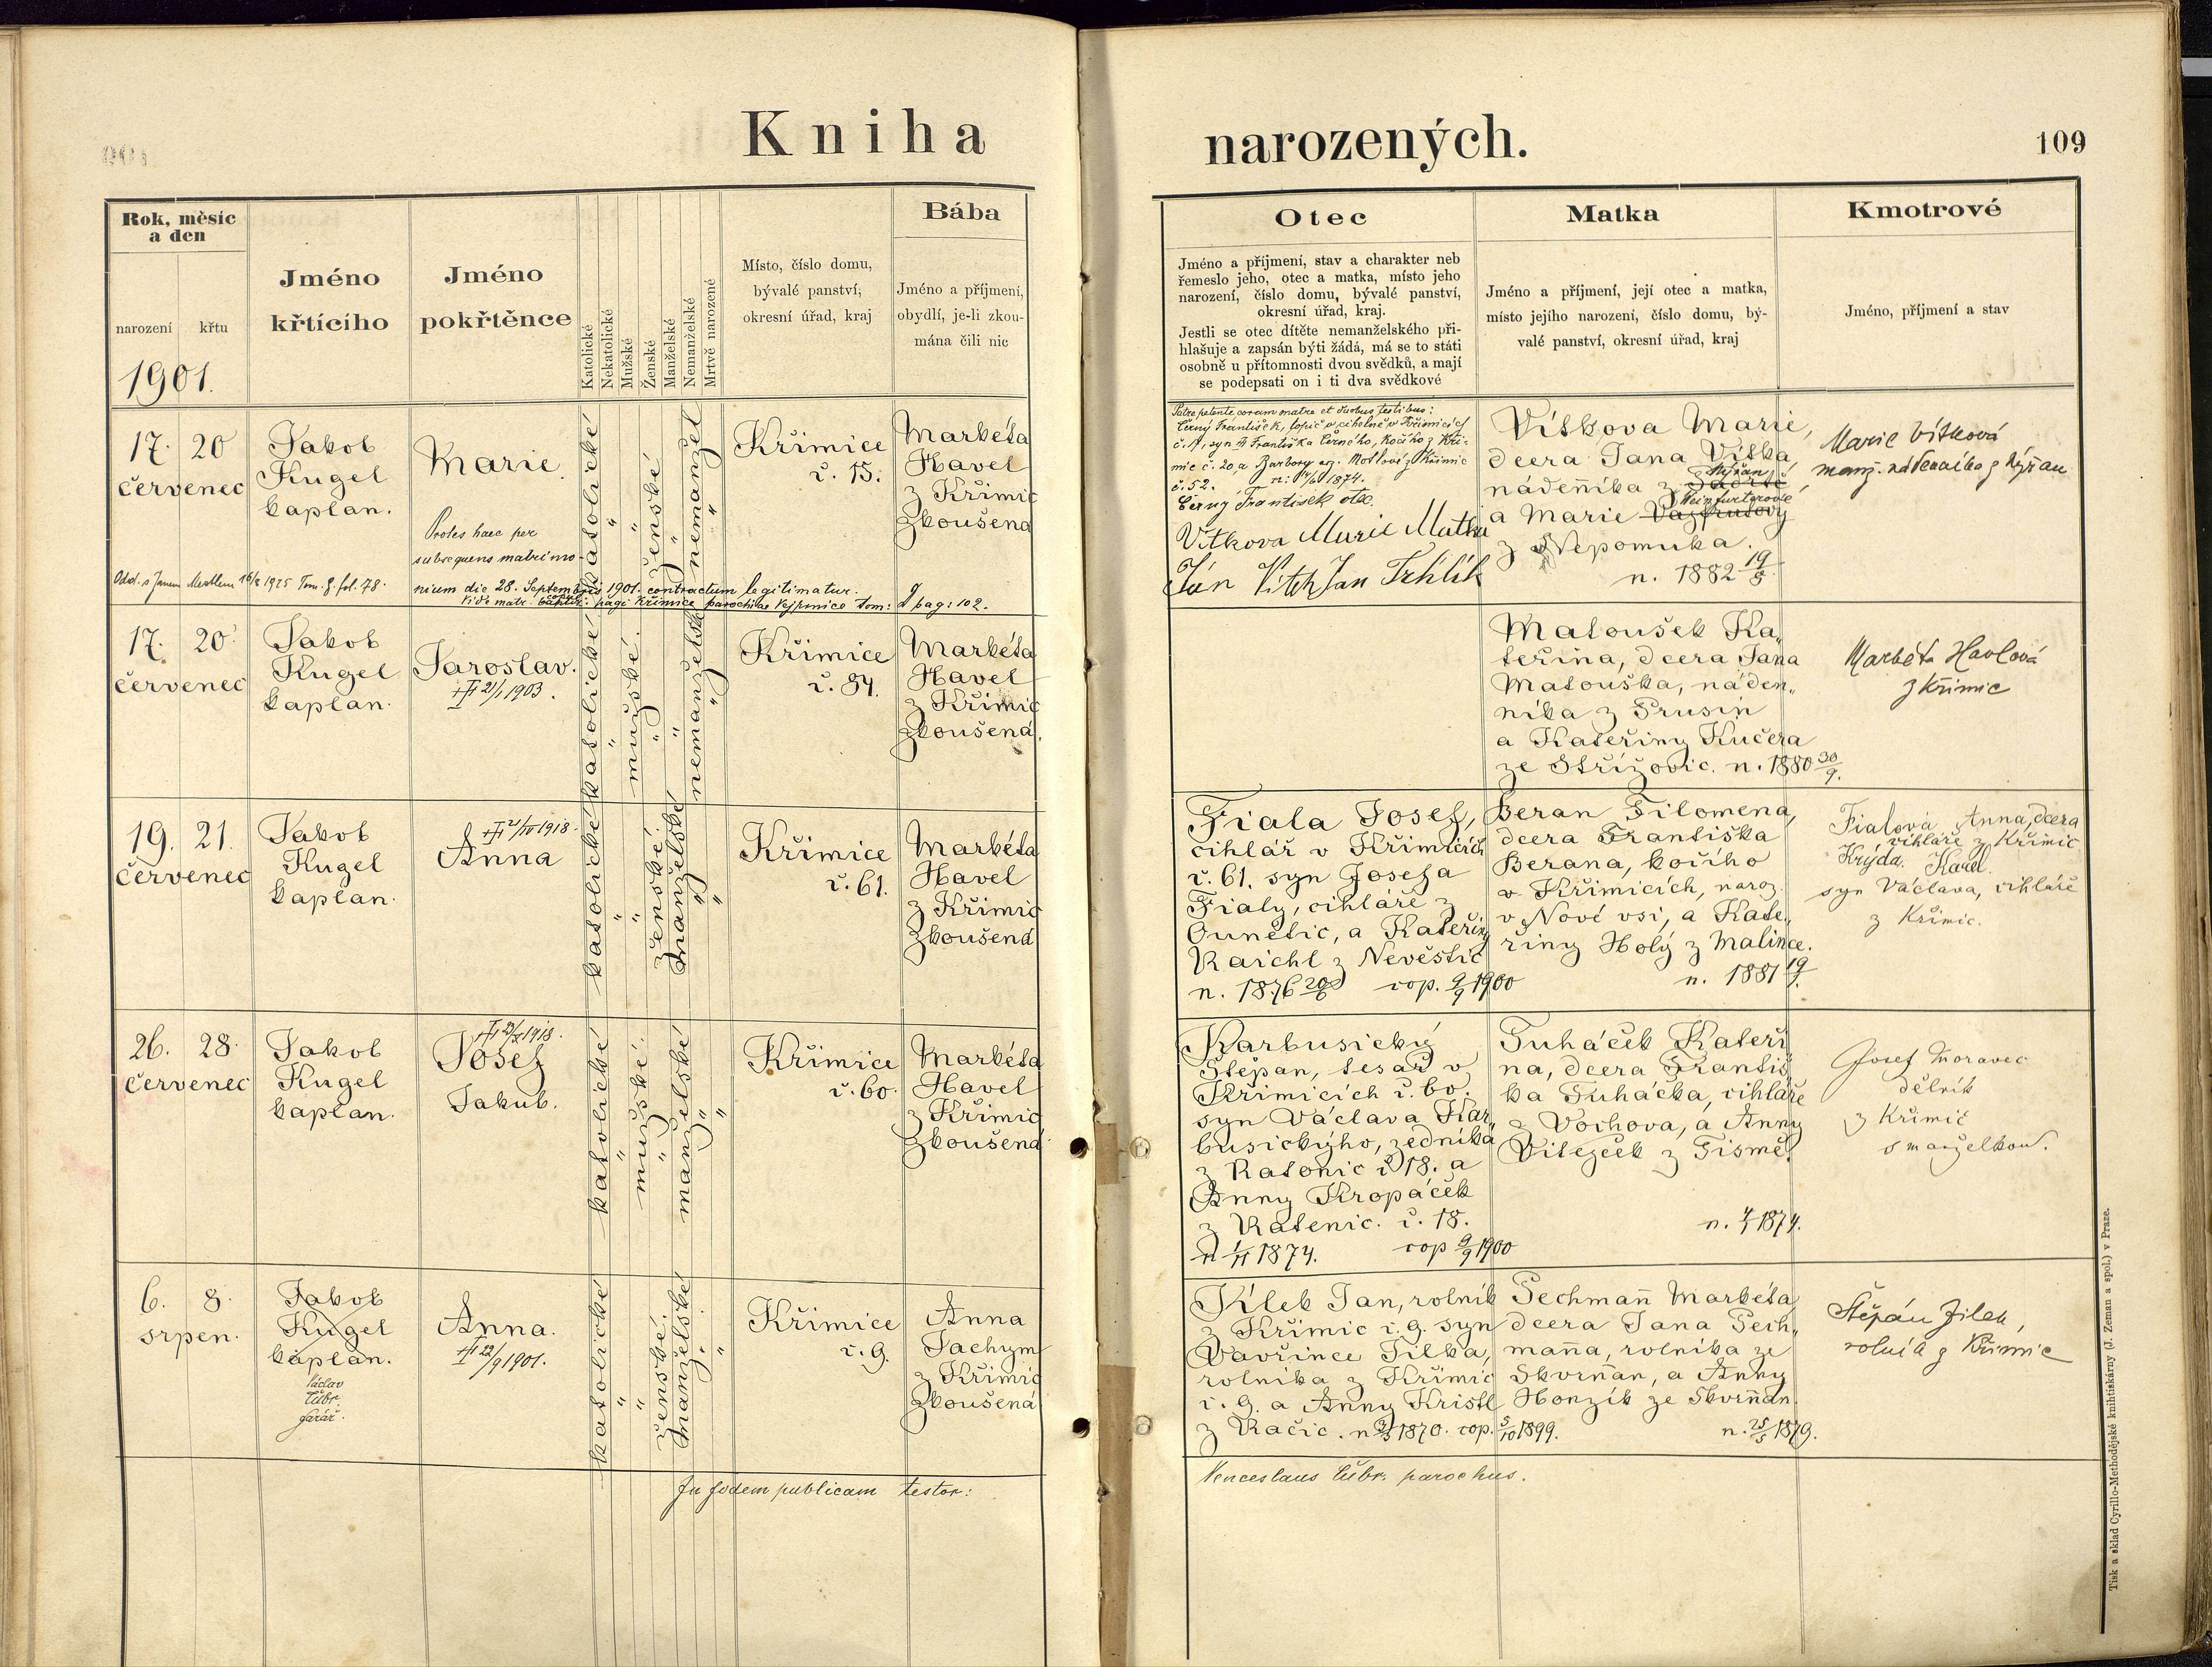 Kniha narozených.
109
Rok, měsíc
a den
narození
křtu
1901.
Jméno
křtícího
Jméno
pokřtěnce
Katolické
Nekatolické
Mužské
Ženské
Manželské
Nemanželské
Mrtvě narozené
Místo, číslo domu,
bývalé panství,
okresní úřad, kraj
Bába
Jméno a příjmení,
obydlí, je-li zkou-
mána čili nic
Otec
Jméno a příjmení, stav a charakter neb
řemeslo jeho, otec a matka, místo jeho
narození, číslo domu, bývalé panství,
okresní úřad, kraj.
Jestli se otec dítěte nemanželského při-
hlašuje a zapsán býti žádá, má se to státi
osobně u přítomnosti dvou svědků, a mají
se podepsati on i ti dva svědkové
Matka
Jméno a příjmení, její otec a matka,
místo jejího narození, číslo domu, bý-
valé panství, okresní úřad, kraj
Kmotrové
Jméno, příjmení a stav
17. 20
červenec
Jakob
Kugel
kaplan.
Marie
Proles haec per
subsequens matrimo-
nium die 28. Septembris 1901. contractum legitimatur.
Vide matr. copul: pagi Křimice parochiae Vejprnice tom: pag: 102.
Odd. s Janem 16/2 1925 Tom. g. fol. 78.
katolické
"
"
ženské
"
nemanžel
"
Křimice
č. 15.
Markéta
Havel
z Křimic
zkoušená
Patre petente coram matre et duobus testibus:
Černý František, topič v cihelně v Křimicích
č. 17, syn Františka Černého, kočího z Kři-
mic č. 20, a Barbory roz. Motlové z Křimic
č. 52. n: 4/6 1874.
Černý František otec.
Vitkova Marie Matka
Jan Vitek Jan Trhlík
Vítkova Marie,
dcera Jana Vítka
nádeníka z
Nýřan
a Marie
Weinfurtgrové
z Nepomuka.
n. 1882 19/8.
Marie Vítková
manž. nádeníka z Nýřan
17. 20
červenec
Jakob
Kugel
kaplan.
Jaroslav.
21/1 1903.
katolické
"
mužské.
"
"
nemanželské
"
Křimice
č. 84.
Markéta
Havel
z Křimic
zkoušená.
Matoušek Ka„
teřina, dcera Jana
Matouška, náden„
níka z Prusin
a Kateřiny Kučera
ze Střížovic. n. 1880 30/9.
Markéta Havlová
z Křimic
19. 21.
červenec
Jakob
Kugel
kaplan.
21/IV 1918.
Anna
katolické
"
"
ženské.
manželské
"
"
Křimice
č. 61.
Markéta
Havel
z Křimic
zkoušená
Fiala Josef,
cihlář v Křimicích
č. 61. syn Josefa
Fialy, cihláře z
Ounětic, a Kateřiny
Raichl z Nevěstic
n. 1876 20/6 cop. 9/9 1900
Beran Filomena,
dcera Františka
Berana, kočího
v Křimicích, naroz.
v Nové vsi, a Kate„
řiny Holý z Malince.
n. 1881 19/7.
Fialova Anna, dcera
cihláře z Křimic
Krýda Karel.
syn Václava, cihláře
z Křimic.
26. 28.
červenec
Jakob
Kugel
kaplan.
Josef
Jakub.
katolické
"
mužské.
"
manželské
"
"
Křimice
č. 60.
Markéta
Havel
z Křimic
zkoušená
Karbusický
Štěpan, tesař v
Křimicích č. 60.
syn Václava Kar„
busickýho, zedníka
z Ratenic č 18. a
Anny Kropáček
z Ratenic. č. 18.
n 1/11 1874. cop 9/9 1900
Tuháček Kateři
na, dcera Františ
ka Tuháčka, cihláře
z Vochova, a Anny
Viteček z Tismě.
n. 4/1 1874.
Josef Moravec
dělník
z Křimic
s manželkou.
6. 8.
srpen.
Jakob
Kugel
kaplan.
Václav
Cibr.
farář.
Anna.
22/9 1901.
katolické
"
"
ženské.
manželské
"
"
Křimice
č. 9.
Anna
Jachym
z Křimic
zkoušená
Jílek Jan, rolník
z Křimic č. 9. syn
Vavřince Jílka,
rolníka z Křimic
č. 9. a Anny Kristl
z Račic. n 9/3 1870. cop. 5/10 1899.
Pechmañ Markéta
dcera Jana Pech„
mañna, rolníka ze
Skvrňan, a Anny
Honzík ze Skvrňan.
n. 25/5 1879.
Štěpán Jílek,
rolník z Křimic
In fidem publicam testor:
Venceslaus Cibr. parochus.
Tisk a sklad Cyrillo-Methodějské knihtiskárny (J. Zeman a spol.) v Praze.